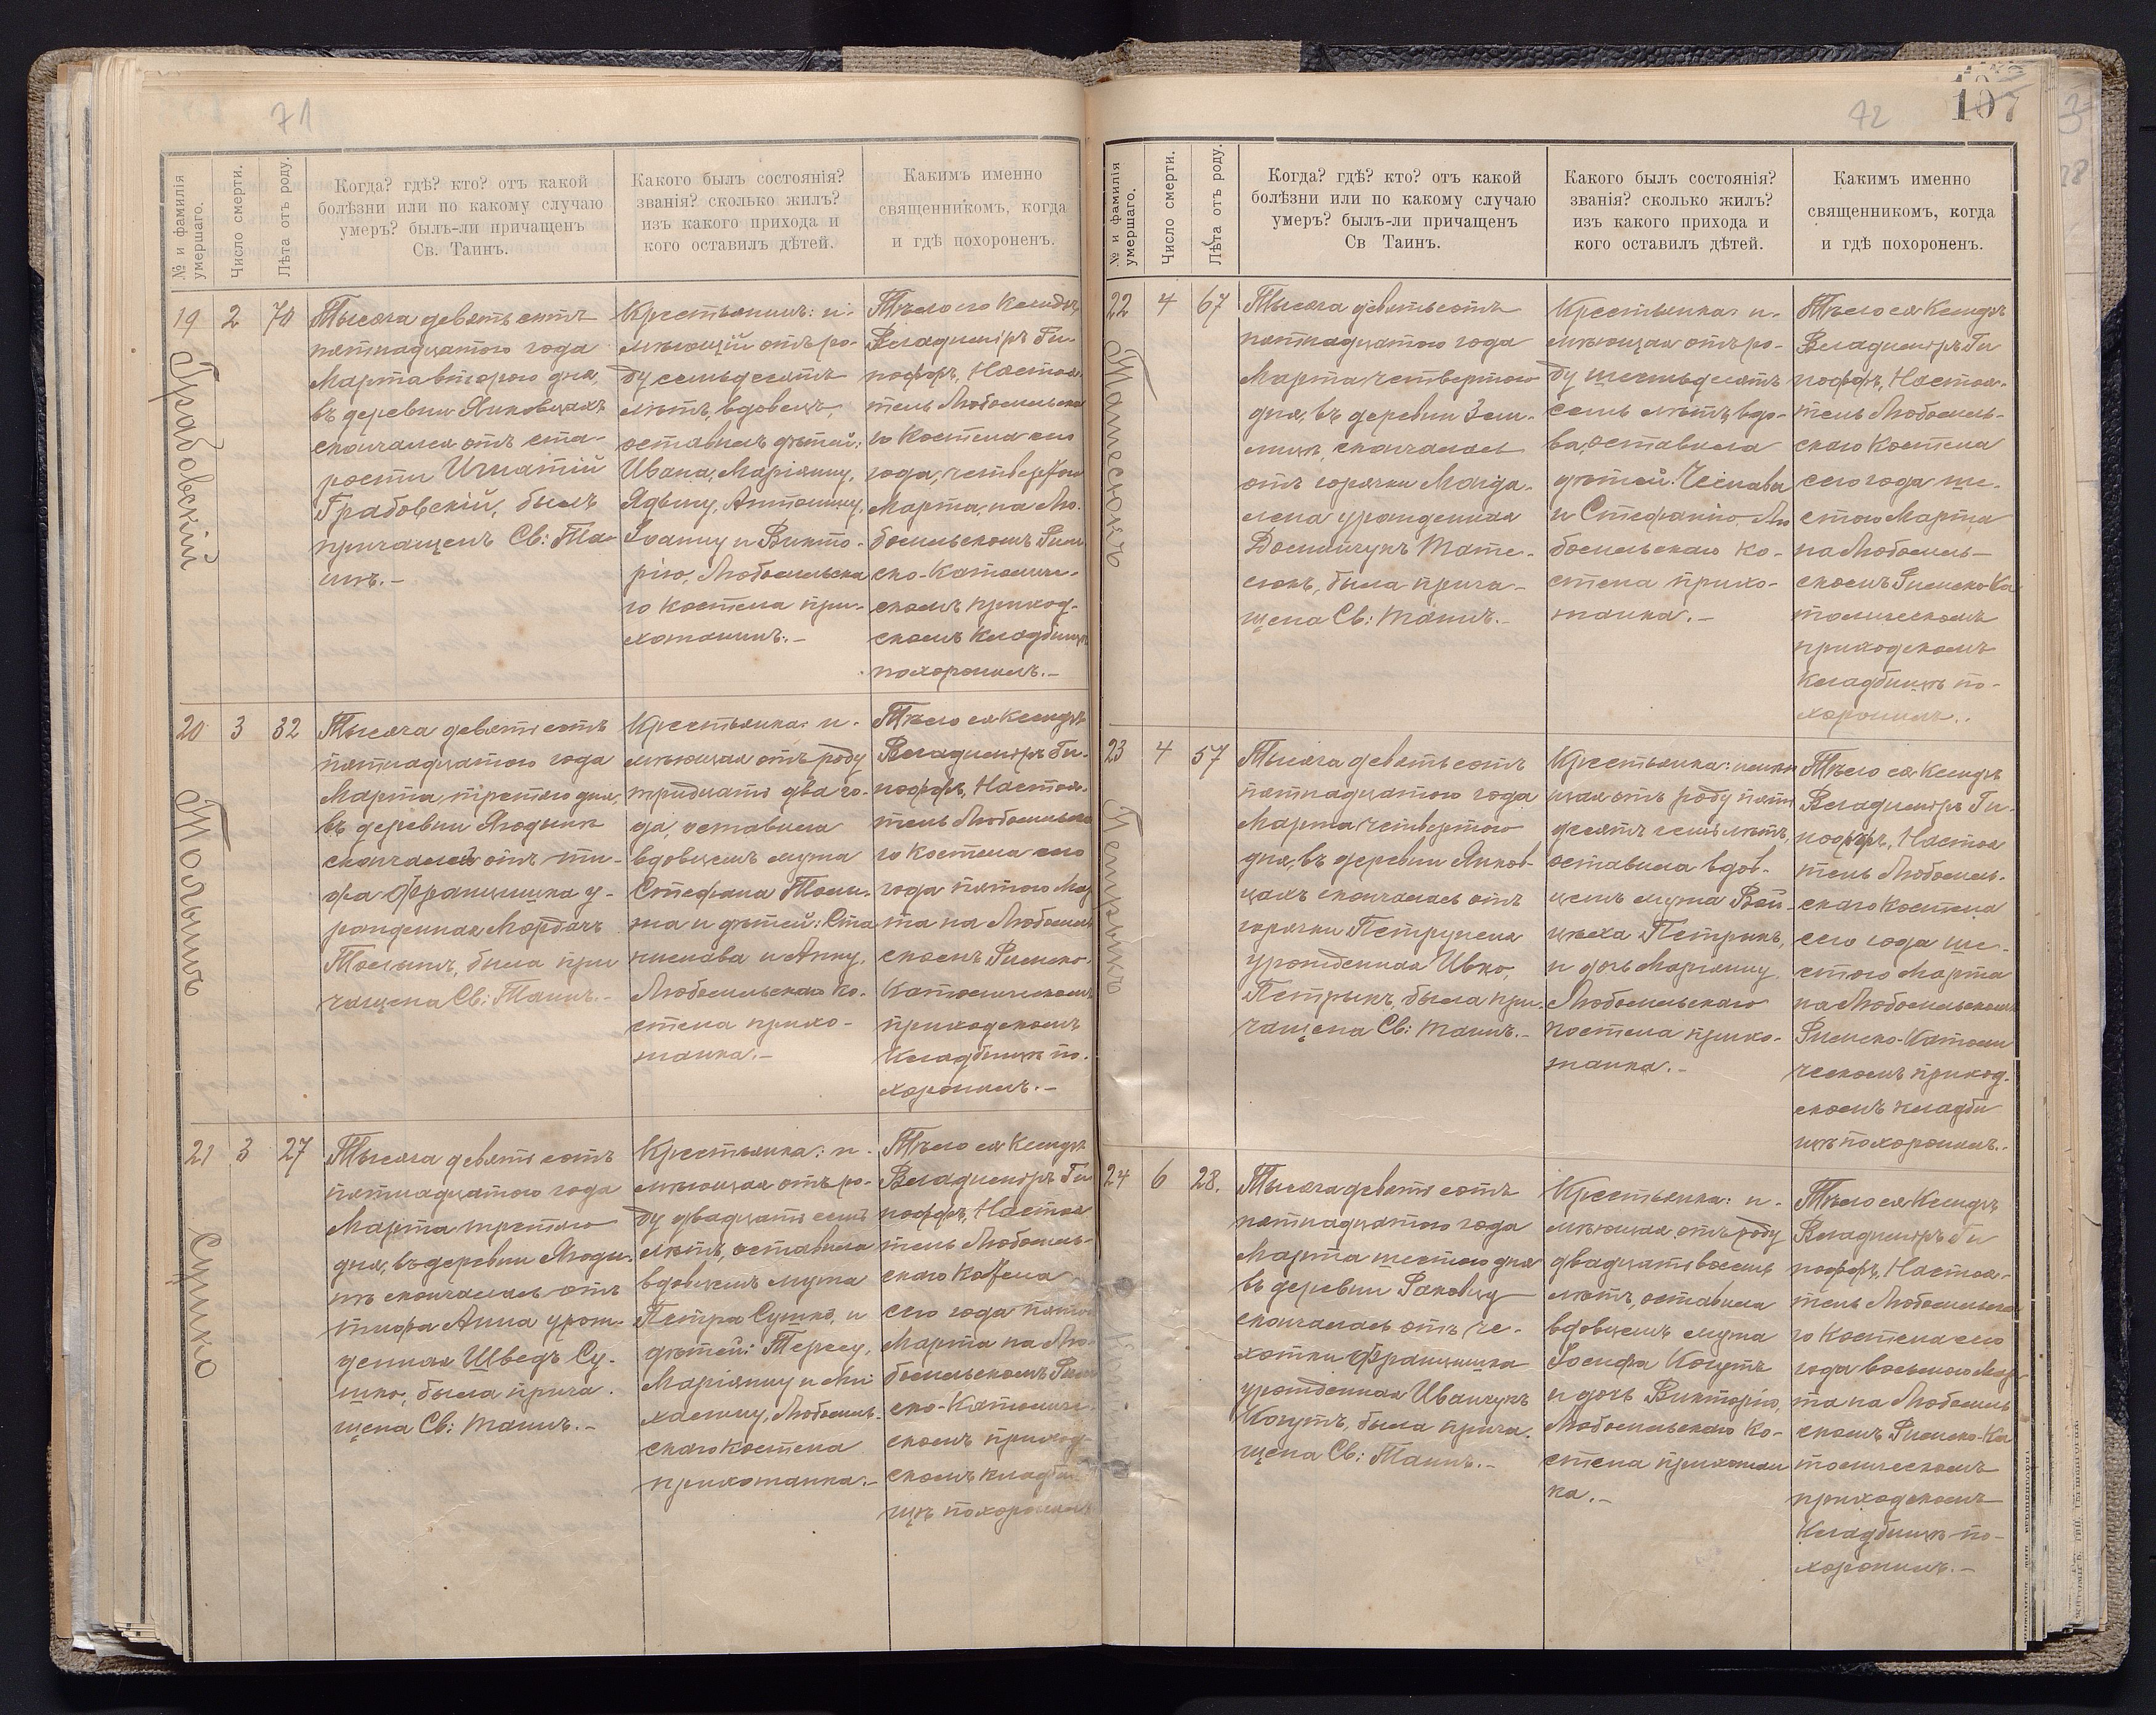 71
№ и фамилія умершаго.
Число смерти.
Лѣта отъ роду.
Когда? гдѣ? кто? отъ какой
болѣзни или по какому случаю
умеръ? былъ-ли причащенъ
Св. Таинъ.
Какого былъ состоянія?
званія? сколько жилъ?
изъ какого прихода и
кого оставилъ дѣтей.
Какимъ именно
священникомъ, когда
и гдѣ похороненъ.
19
Грабовскій
2
70
Тысяча девятьсотъ
пятнадцатого года
Марта второго дня,
въ деревни Янковцахъ
скончался отъ ста-
рости Игнатій
Грабовскій, былъ
причащенъ Св: Та-
инъ.-
Крестьянинъ: и-
мѣющій отъ ро-
ду семьдесятъ
лѣтъ, вдовецъ,
оставилъ дѣтей:
Ивана, Маріянну,
Ядвигу, Антонину,
Іоанну и Викто-
рію, Любомльска
го костела при-
хожанинъ.-
Тѣло его Ксендзъ
Владиміръ Ги-
поффъ, Настоя-
тель Любомльска
го Костела сего
года, четвертого
Марта, на Лю-
бомльскомъ Рим-
ско-Католиче-
скомъ приход-
скомъ Кладбищѣ
похоронилъ.-
20
3
32
Тысяча девятьсотъ
пятнадцатого года
Марта, третяго дня,
въ деревни Ягодынѣ
скончалась отъ ти-
фа Францишка у-
рожденная Мордачъ
была при
чащена Св: Таинъ.-
Крестьянка: и-
мѣющая отъ роду
тридцать два го-
да, оставила
вдовцемъ мужа
Стефана
и дѣтей: Ста
нислава и Анну,
Любомльскаго Ко-
стела прихо-
жанка.-
Тѣло ея Ксендзъ
Владиміръ Ги-
поффъ, Настоя-
тель Любомльска
го Костела сего
года пятого Мар
та на Любомль
скомъ Римско-
Католическомъ
приходскомъ
Кладбищѣ по-
хоронилъ.-
21
Сушко
3
27
Тысяча девятьсотъ
пятнадцатого года
Марта третяго
дня, въ деревни
скончалась отъ
тифа Анна урож-
денная Шведъ Су-
шко, была прича-
щена Св: Таинъ.-
Крестьянка: и-
мѣющая отъ ро-
ду двадцать семь
лѣтъ, оставила
вдовцемъ мужа
Петра Сушко, и
дѣтей: Терезу,
Маріянну и Ми-
халину, Любомль-
скаго костела
прихожанка.-
Тѣло ея Ксендзъ
Владиміръ Ги
поффъ, Настоя
тель Любомль-
скаго Костела
сего года пятого
Марта на Лю-
бомльскомъ Рим
ско-Католиче-
скомъ приход-
скомъ кладби-
щѣ похоронилъ
72
107
№ и фамилія умершаго.
Число смерти.
Лѣта отъ роду.
Когда? гдѣ? кто? отъ какой
болѣзни или по какому случаю
умеръ? былъ-ли причащенъ
Св Таинъ.
Какого былъ состоянія?
званія? сколько жилъ?
изъ какого прихода и
кого оставилъ дѣтей.
Какимъ именно
священникомъ, когда
и гдѣ похороненъ.
22
4
67
Тысяча девятьсотъ
пятнадцатого года
Марта четвертого
дня, въ деревни Зем-
лицѣ, скончалась
отъ горячки Магда-
лена урожденная
была прича-
щена Св: Таинъ.-
Крестьянка: и-
мѣющая отъ ро-
ду шестьдесятъ
семь лѣтъ, вдо-
ва, оставила
дѣтей: Чеслава
и Стефанію, Лю
бомльскаго Ко-
стела прихо-
жанка.-
Тѣло ея Ксендзъ
Владиміръ Ги
поффъ, Настоя-
тель Любомль-
скаго Костела
сего года ше-
стого Марта
на Любомль-
скомъ Римско-Ка
толическомъ
приходскомъ
Кладбищѣ по-
хоронилъ.-
23
Петрыкъ
4
57
Тысяча девятьсотъ
пятнадцатого года
Марта четвертого
дня, въ деревни Янков-
цахъ скончалась отъ
горячки
урожденная Ивко,
Петрыкъ, была при-
чащена Св: Таинъ.-
Крестьянка: имѣю
щая отъ роду пять
десятъ семь лѣтъ,
оставила вдов-
цемъ мужа Вой-
цѣха Петрыкъ,
и дочь Маріянну,
Любомльскаго
костела прихо-
жанка.-
Тѣло ея Ксендзъ
Владиміръ Ги-
поффъ, Настоя
тель Любомль-
скаго костела
сего года ше-
стого Марта
на Любомльскомъ
Римско-Католи
ческомъ приход-
скомъ кладби
щѣ похоронилъ.-
24
6
28.
Тысяча девятьсотъ
пятнадцатого года
Марта шестого дня
въ деревни
скончалась отъ че-
хотки Францишка
урожденная Иванчукъ
Когутъ, была прича-
щена Св: Таинъ.-
Крестьянка: и-
мѣющая отъ роду
двадцать восемь
лѣтъ, оставила
вдовцемъ мужа
Іосифа Когутъ
и дочь Викторію,
Любомльскаго Ко-
стела прихожан
ка.-
Тѣло ея Ксендзъ
Владиміръ Ги
поффъ, Настоя-
тель Любомльска
го Костела сего
года восьмого Мар
та на Любомль
скомъ Римско-Ка
толическомъ
приходскомъ
Кладбищѣ по-
хоронилъ.-